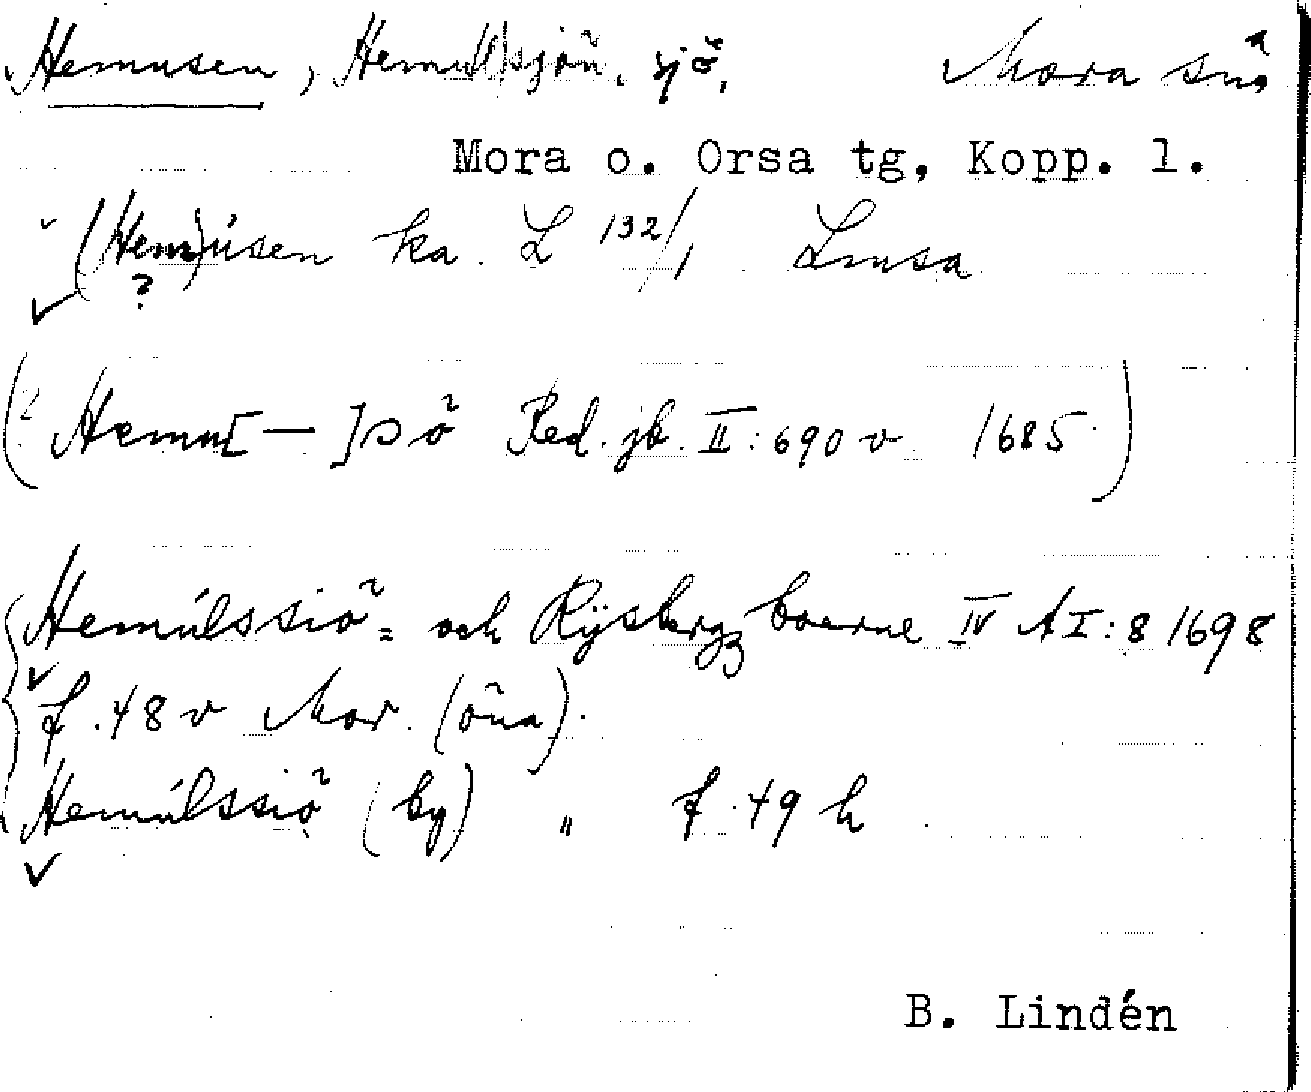 Hemusen, Hemulsjön, sjö, Mora sn,
Mora o. Orsa tg, Kopp. l.
(Hem)úsen ka. L 132/1 Lmsa
?
(? Hemu[—]sö Red. jb. II:690 v 1685)
Hemúlssiö= och Rÿsbergz boerne IV A I:8 1698
f. 48 v Mor. (öna).
Hemúlssiö (by) " f. 49 h
B. Lindén